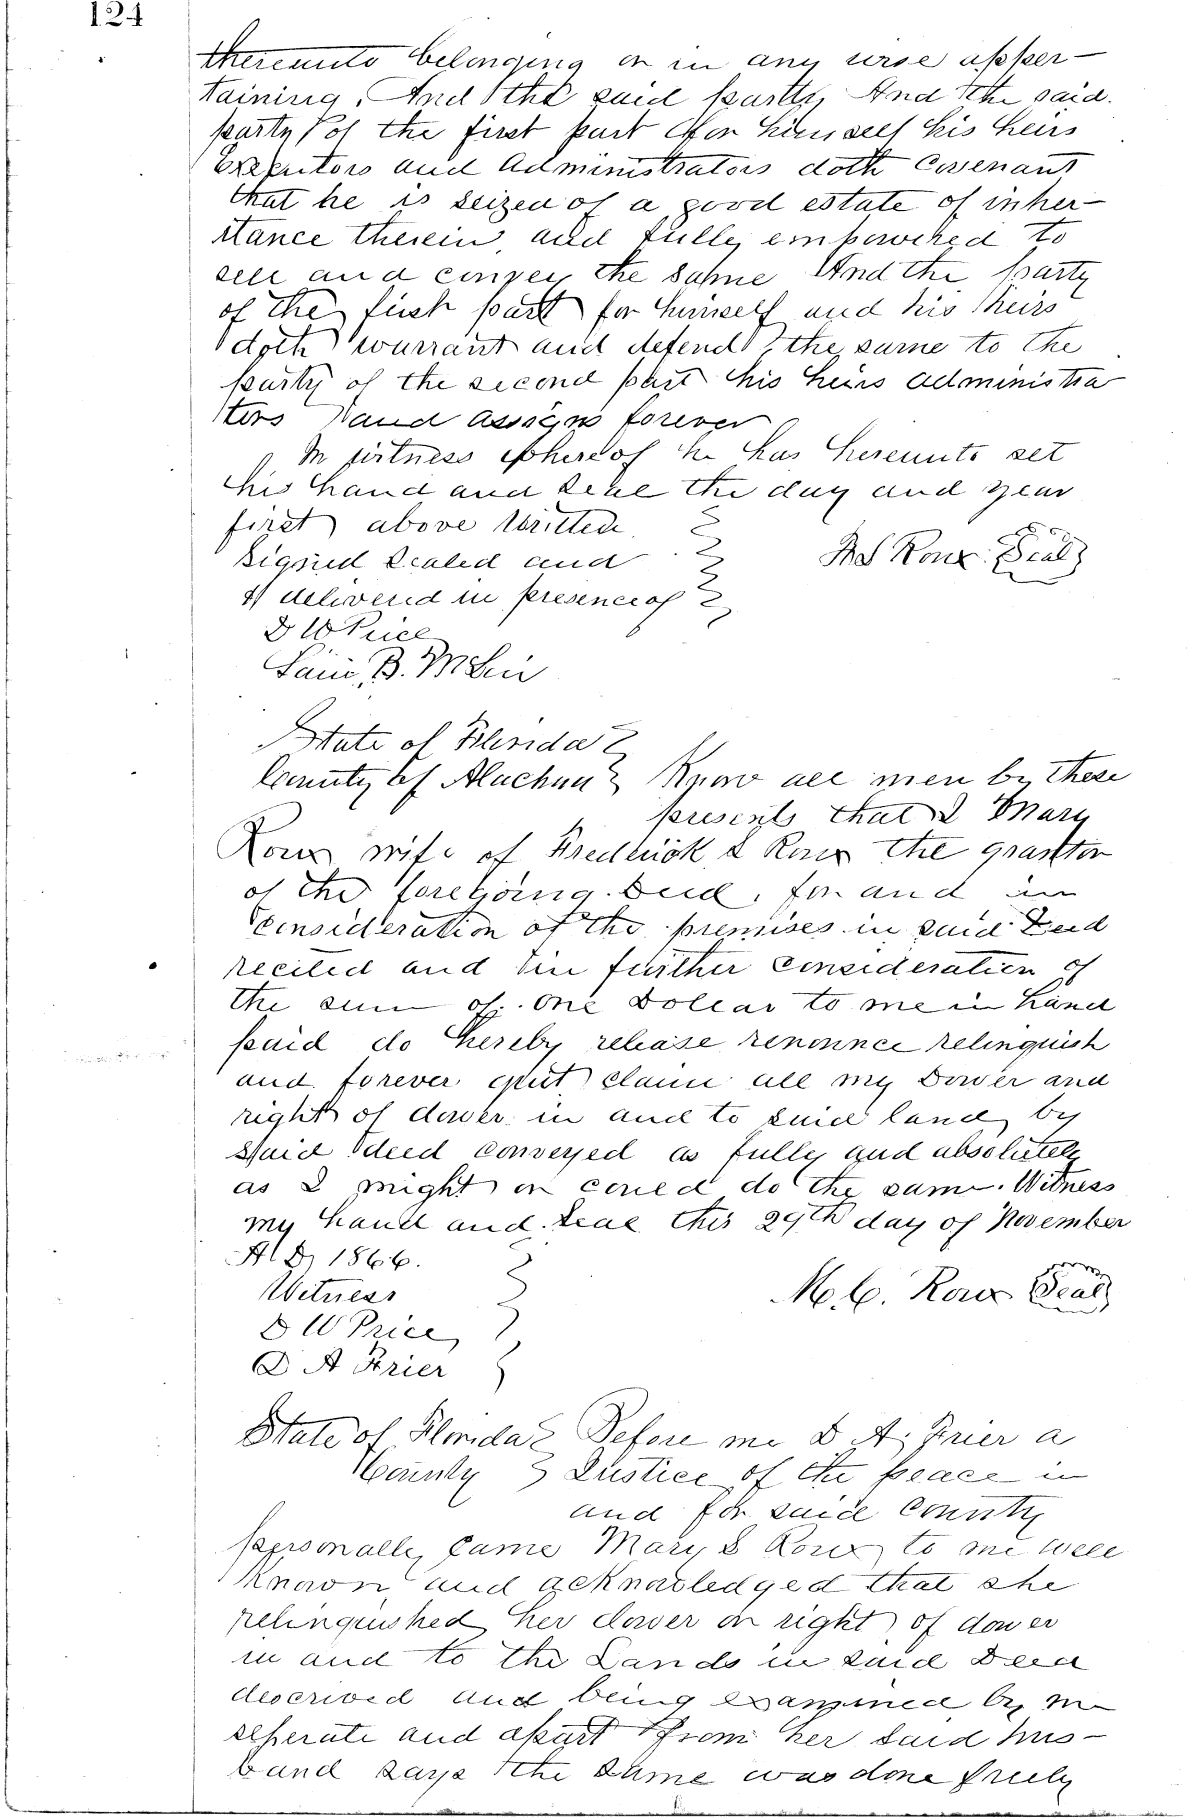 124
thereunto belonging or in any wise apper-
taining. And the said party, And the said
party of the first part for himself his heirs
Executors and Administrators doth Covenant
that he is seized of a good estate of inher-
itance therein, and fully empowered to
sell and convey the same And the party
of the first part for himself and his heirs
doth warrant and defend the same to the
party of the second part his heirs administra
tors and assigns forever
In witness whereof he has hereunto set
his hand and seal the day and year
first above written
Signed Sealed and Roux Seal
& delivered in presence of
D W Price
B.
State of Florida
County of Alachua Know all men by these
presents that I Mary
Roux wife of Frederick Roux the grantor
of the foregoing Deed, for and in
consideration of the premises in said Deed
recited and in further consideration of
the sum of One Dollar to me in hand
paid do hereby release renounce relinquish
and forever quit claim all my Dower and
right of dower in and to said land by
said deed conveyed as fully and absolutely
as I might or could do the same. Witness
my hand and seal this 29th day of November
A D 1866.
Witness M. C. Roux Seal
D W Price
D A Frier
State of Florida Before me D A. Frier a
County Justice of the peace in
and for said County
personally came Mary Roux to me well
known and acknowledged that she
relinquished her dower or right of dower
in and to the Lands in said Deed
described and being examined by me
seperate and apart from her said hus-
band says the same was done freely